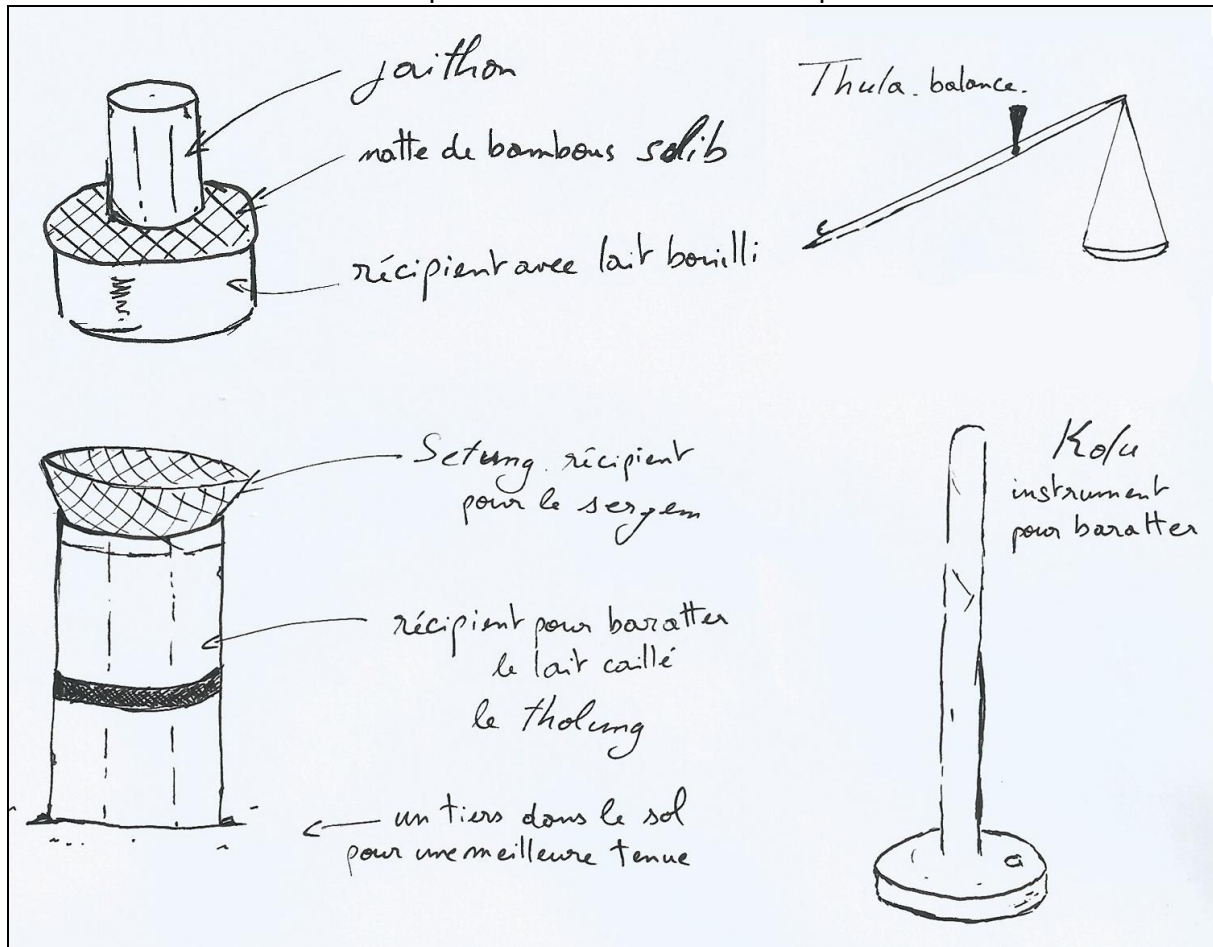 jaithon
natte de bambous solib
récipient avec lait bouilli
Thula. balance.
Setung. récipient
pour le sergem
récipient pour baratter
le lait caillé
le tholung
un tiers dans le sol
pour une meilleure tenue
Kolu
instrument
pour baratter